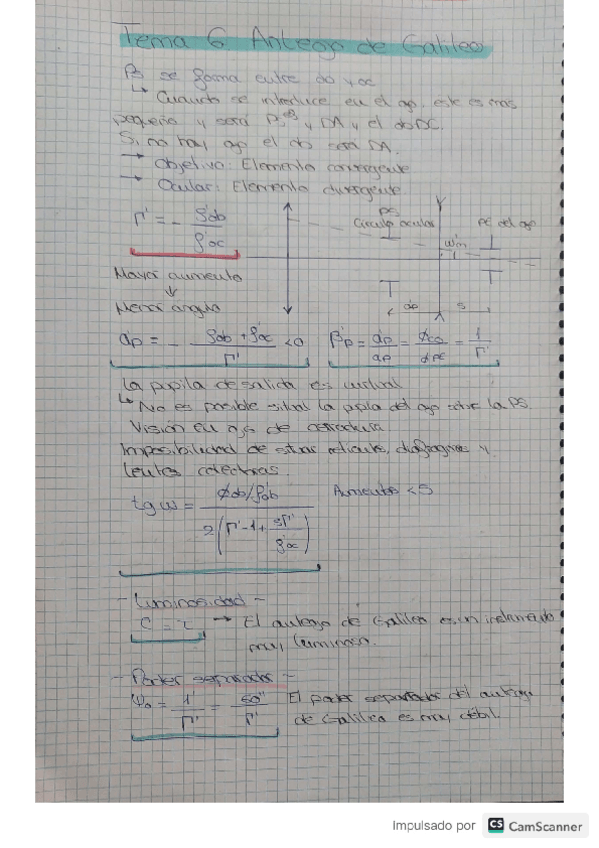 Tema 6 Anteojo de Galileo
PS se forma entre ob y oc
↳ Cuando se introduce en el ojo, este es más
pequeño y será PS y DA y el ob DC.
Si no hay ojo el ob será DA.
→ Objetivo: Elemento convergente
→ Ocular: Elemento divergente
Γ' = - f'ob / f'oc
PS
Círculo ocular
PE del ojo
w'm
a'p
s
Mayor aumento
↓
Menor ángulo
a'p = - f'ob + f'oc / Γ' < 0
β'p = a'p / ap = ϕco / ϕPE = 1 / Γ'
La pupila de salida es virtual
↳ No es posible situar la pupila del ojo sobre la PS
Visión en ojo de cerradura
Imposibilidad de situar retículo, diafragma y
lentes colectoras.
tg w = ϕob/f'ob / 2(Γ'-1+ sΓ'/f'oc)
Aumentos < 5
- Luminosidad -
C = τ → El anteojo de Galileo es un instrumento
muy luminoso.
- Poder separador -
Ψo = 1' / Γ' = 60" / Γ' El poder separador del anteojo
de Galileo es muy débil.
Impulsado por CS CamScanner